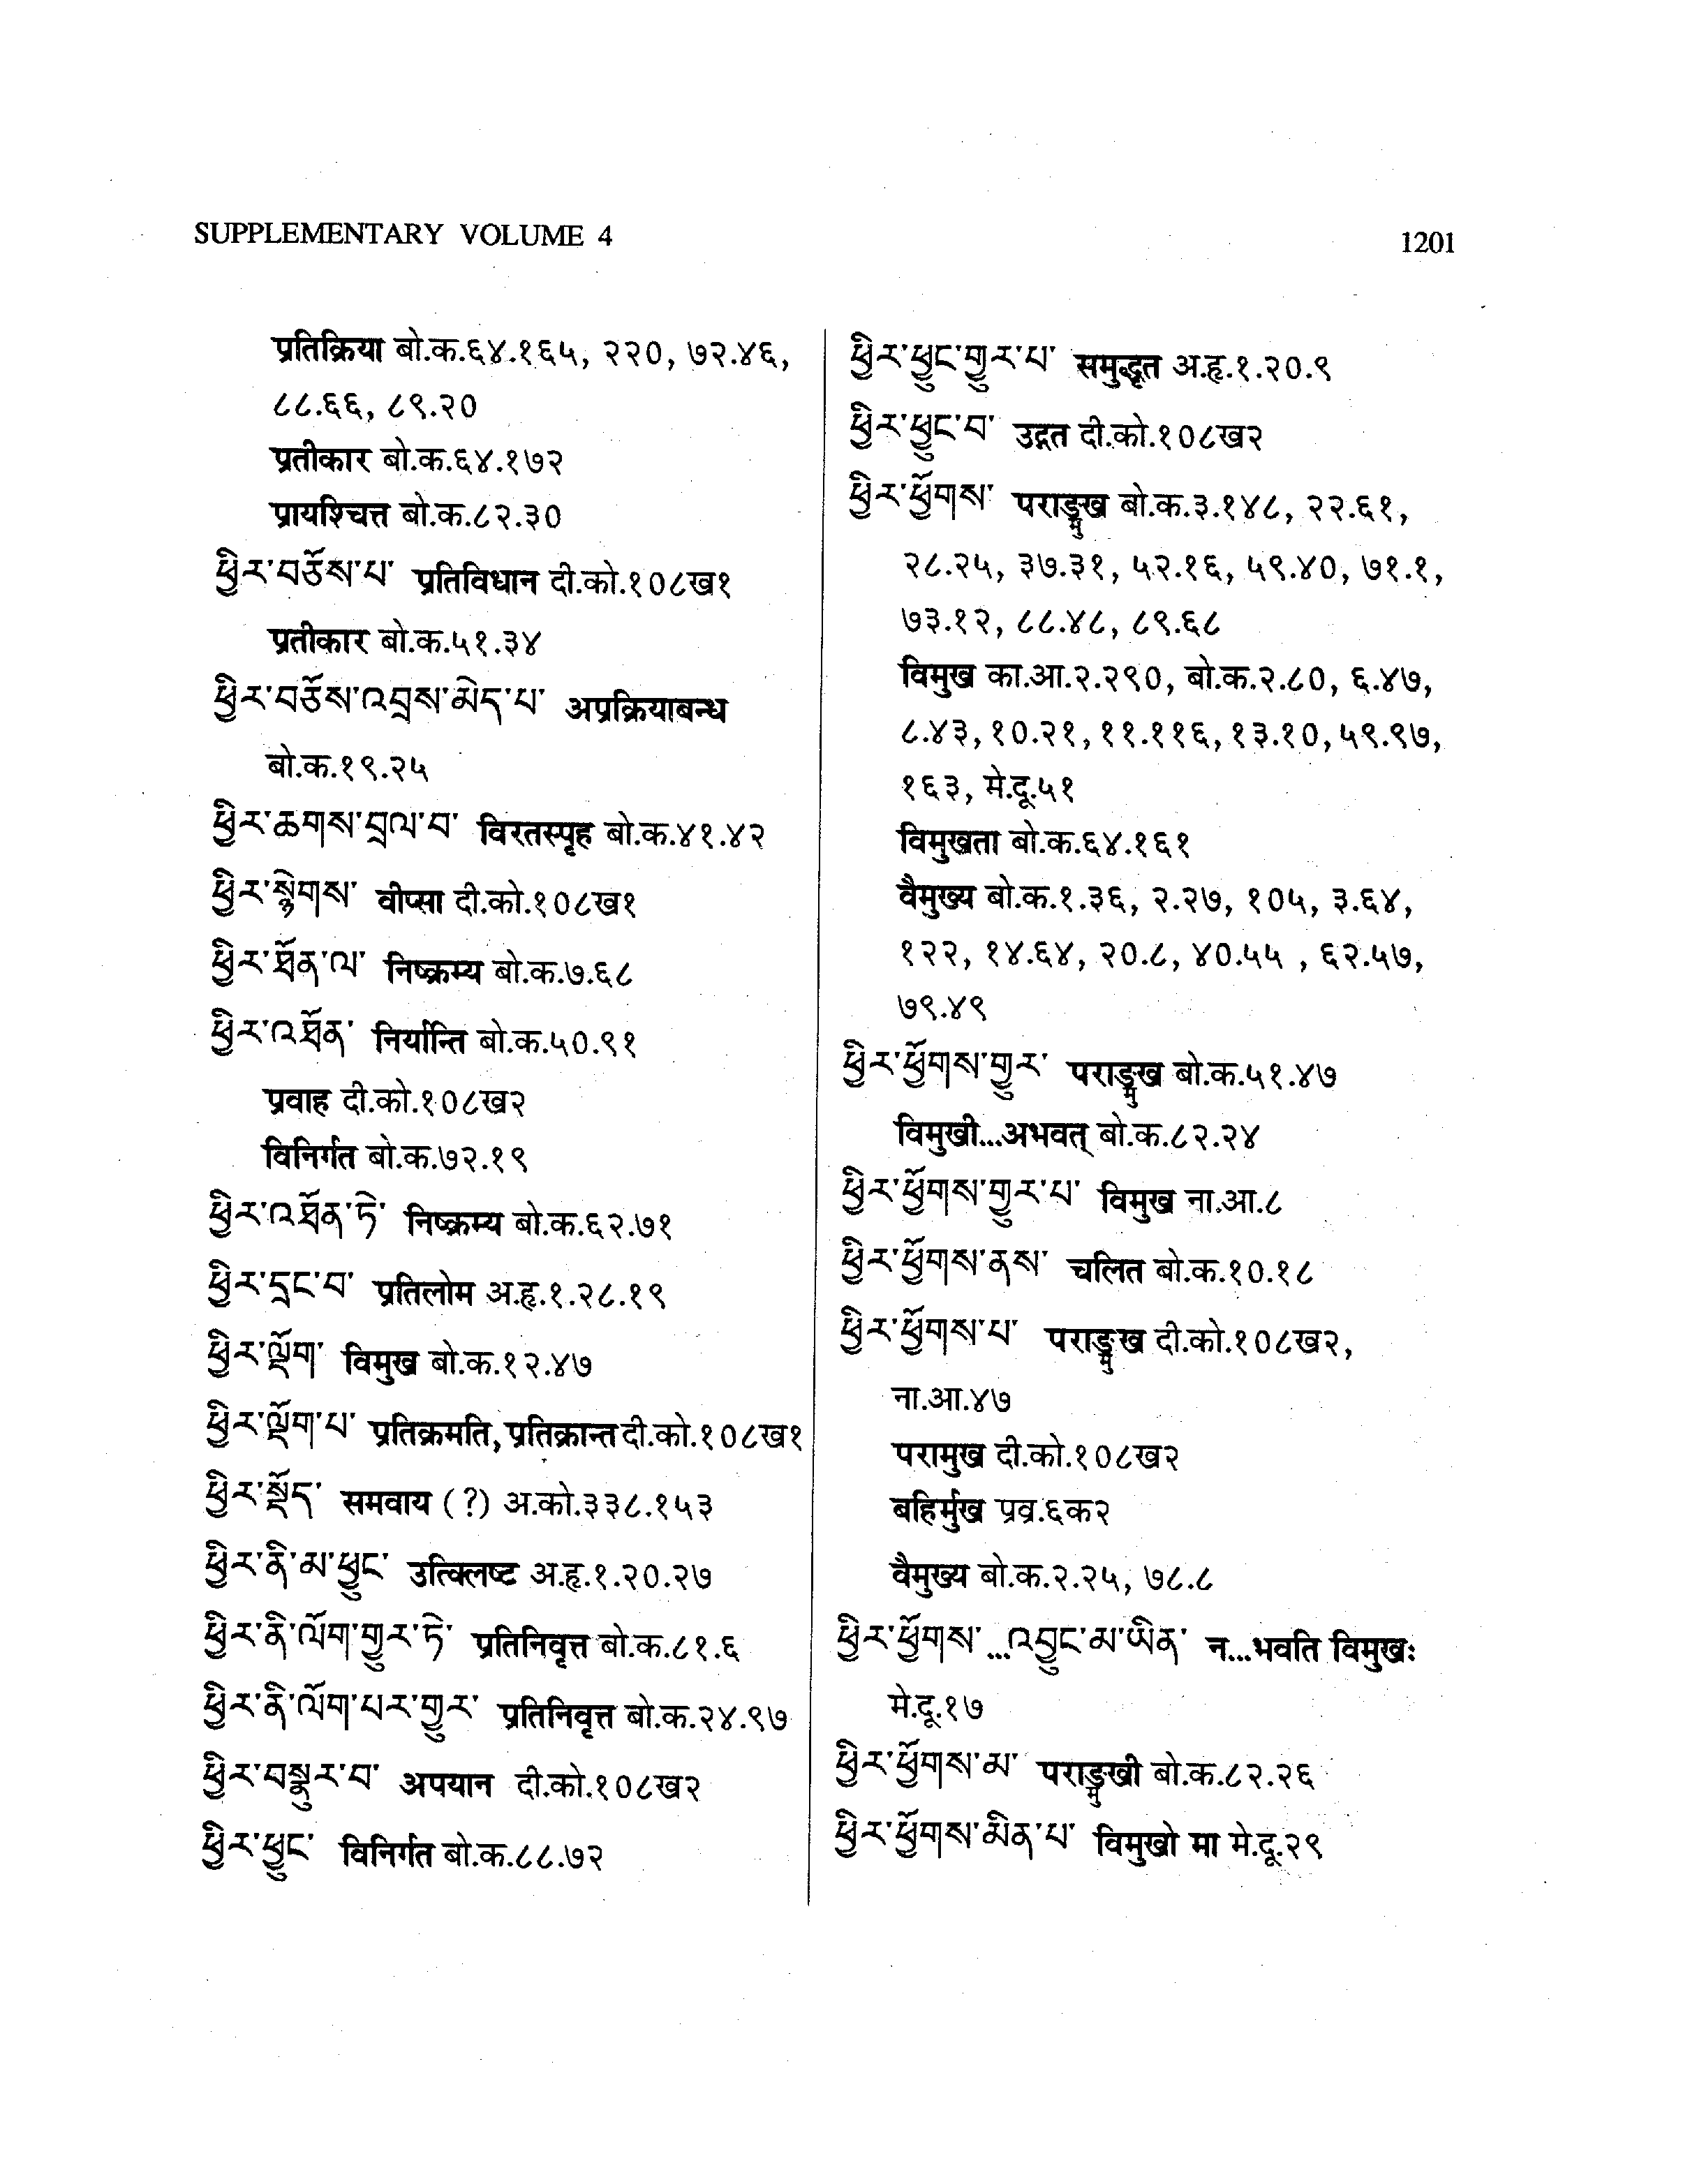 SUPPLEMENTARY VOLUME 4
1201
प्रतिक्रिया बो.क.६४.१६५, २२०, ७२.४६,
८८.६६, ८९.२०
प्रतीकार बो.क.६४.१७२
प्रायश्चित्त बो.क.८२.३०
ཕྱིར་བཅོས་པ་ प्रतिविधान दी.को.१०८ख१
प्रतीकार बो.क.५१.३४
ཕྱིར་བཅོས་འབྲས་མེད་པ་ अप्रक्रियाबन्ध
बो.क.१९.२५
ཕྱིར་ཆགས་བྲལ་བ་ विरतस्पृह बो.क.४१.४२
ཕྱིར་སྙེགས་ वीप्सा दी.को.१०८ख१
ཕྱིར་ཐོན་ལ་ निष्क्रम्य बो.क.७.६८
ཕྱིར་འཐོན་ निर्यान्ति बो.क.५०.९१
प्रवाह दी.को.१०८ख२
विनिर्गत बो.क.७२.१९
ཕྱིར་འཐོན་ཏེ་ निष्क्रम्य बो.क.६२.७१
ཕྱིར་དྲང་བ་ प्रतिलोम अ.हृ.१.२८.१९
ཕྱིར་ལྡོག་ विमुख बो.क.१२.४७
ཕྱིར་ལྡོག་པ་ प्रतिक्रमति, प्रतिक्रान्त दी.को.१०८ख१
ཕྱིར་སྡོད་ समवाय (?) अ.को.३३८.१५३
ཕྱིར་ནི་མ་ཕྱུང་ उत्क्लिष्ट अ.हृ.१.२०.२७
ཕྱིར་ནི་ལོག་གྱུར་ཏེ་ प्रतिनिवृत्त बो.क.८१.६
ཕྱིར་ནི་ལོག་པར་གྱུར་ प्रतिनिवृत्त बो.क.२४.९७
ཕྱིར་བསྣུར་བ་ अपयान दी.को.१०८ख२
ཕྱིར་ཕྱུང་ विनिर्गत बो.क.८८.७२
ཕྱིར་ཕྱུང་གྱུར་པ་ समुद्धृत अ.हृ.१.२०.९
ཕྱིར་ཕྱུང་བ་ उद्गत दी.को.१०८ख२
ཕྱིར་ཕྱོགས་ पराङ्मुख बो.क.३.१४८, २२.६१,
२८.२५, ३७.३१, ५२.१६, ५९.४०, ७१.१,
७३.१२, ८८.४८, ८९.६८
विमुख का.आ.२.२९०, बो.क.२.८०, ६.४७,
८.४३, १०.२१, ११.११६, १३.१०, ५९.९७,
१६३, मे.दू.५१
विमुखता बो.क.६४.१६१
वैमुख्य बो.क.१.३६, २.२७, १०५, ३.६४,
१२२, १४.६४, २०.८, ४०.५५ , ६२.५७,
७९.४९
ཕྱིར་ཕྱོགས་གྱུར་ पराङ्मुख बो.क.५१.४७
विमुखी...अभवत् बो.क.८२.२४
ཕྱིར་ཕྱོགས་གྱུར་པ་ विमुख ना.आ.८
ཕྱིར་ཕྱོགས་ནས་ चलित बो.क.१०.१८
ཕྱིར་ཕྱོགས་པ་ पराङ्मुख दी.को.१०८ख२,
ना.आ.४७
परामुख दी.को.१०८ख२
बहिर्मुख प्रव्र.६क२
वैमुख्य बो.क.२.२५, ७८.८
ཕྱིར་ཕྱོགས་...འབྱུང་མ་ཡིན་ न...भवति विमुखः
मे.दू.१७
ཕྱིར་ཕྱོགས་མ་ पराङ्मुखी बो.क.८२.२६
ཕྱིར་ཕྱོགས་མིན་པ་ विमुखो मा मे.दू.२९